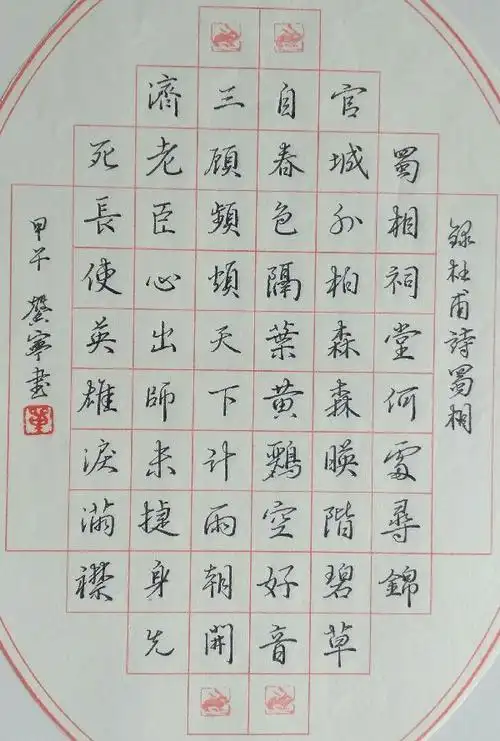 錄杜甫詩蜀相
蜀相祠堂何處尋錦
官城外柏森森暎階碧草
自春色隔葉黃鸝空好音
三顧頻煩天下計兩朝開
濟老臣心出師未捷身先
死長使英雄淚滿襟
甲午 龔寧書